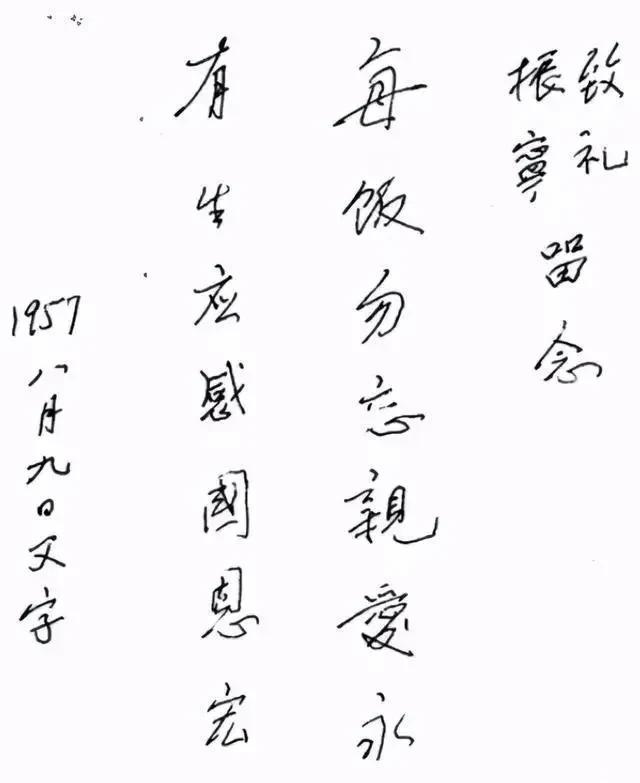 致礼
振寧
畄念
每飯勿忘親愛永
有生應感國恩宏
1957
八月九日父字